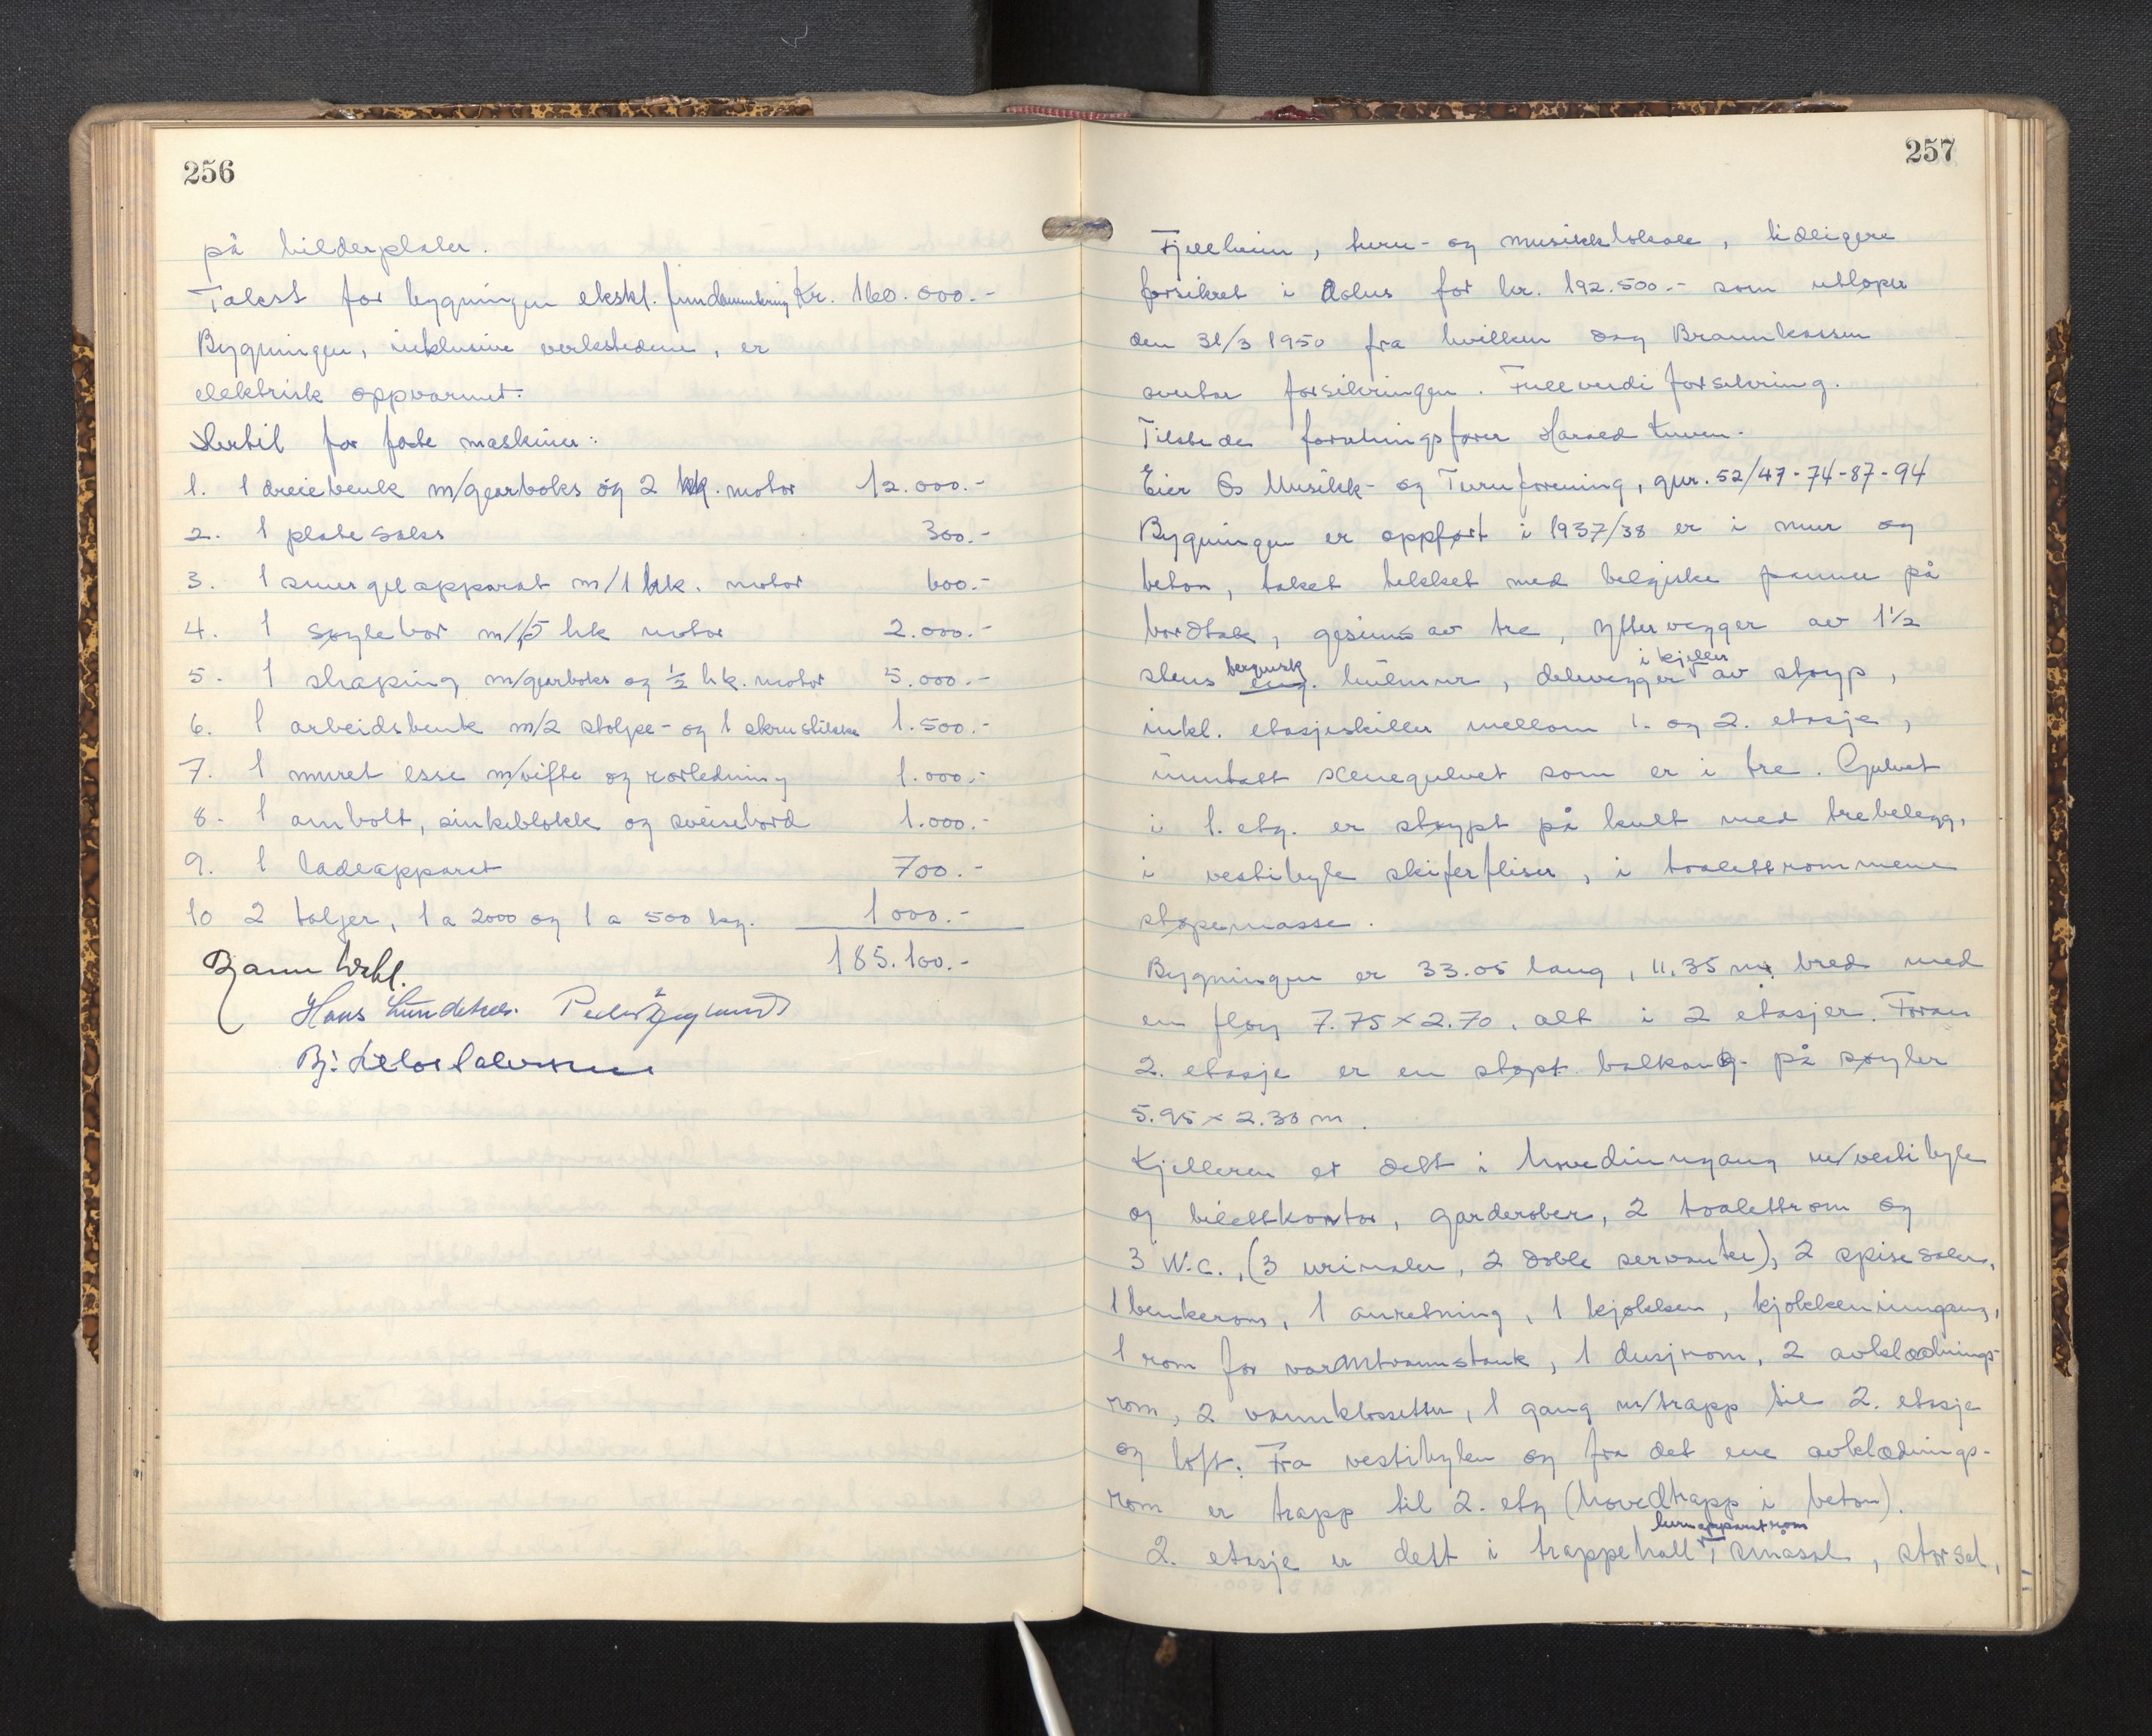 256
på bilderplater.
Takst for bygningen ekskl. fundamentering Kr. 160.000.-
Bygningen, inklusive verkstedene, er
elektrisk oppvarmet.
Hertil for faste maskiner:
1. 1 dreiebenk m/gearboks og 2 hk. motor 12.000.-
2. 1 platesaks 300.-
3. 1 smergelapparat m/1 hk. motor 600.-
4. 1 søylebor m/1,5 hk motor 2.000.-
5. 1 shaping m/gearboks og ½ hk. motor 5.000.-
6. 1 arbeidsbenk m/2 stolpe- og 1 skrustikke 1.500.-
7. 1 muret esse m/vifte og rørledning 1.000.-
8. 1 ambolt, sinkeblokk og sveisebord 1.000.-
9. 1 ladeapparat 700.-
10 2 taljer, 1 a 2000 og 1 a 500 kg. 1000.-
185.100.-
Hans
257
Fjellheim, turn- og musikklokale, tidligere
forsikret i Æolus for kr. 192.500.- som utløper
den 31/3 1950 fra hvilken dag Brannkassen
overtar forsikringen. Fullverdiforsikring.
Tilstede forretningsfører Harald Tuven.
Eier Os Musikk- og Turnforening, gnr. 52/47-74-87-94
Bygningen er oppført i 1937/38 er i mur og
beton, taket tekket med belgiske panner på
bordtak, gesims av tre, yttervegger av 1½
stens bergensk eng. hulmur, delevegger i kjeller av støyp,
inkl. etasjeskiller mellom 1. og 2. etasje,
unntatt scenegulvet som er i tre. Gulvet
i 1. etg. er støypt på kult med trebelegg,
i vestibyle skiferfliser, i toalettrommene
støpemasse.
Bygningen er 33.05 lang, 11.35 m. bred med
en fløy 7.75 x 2.70, alt i 2 etasjer. Foran
2. etasje er en støpt balkong på søyler
5.95 x 2.30 m.
Kjelleren er delt i hovedinngang m/vestibyle
og billettkontor, garderober, 2 toalettrom og
3 W.C., (3 urinaler, 2 doble servanter), 2 spisesaler,
1 benkerom, 1 anretning, 1 kjøkken, kjøkkeninngang,
1 rom for varmtvannstank, 1 dusjrom, 2 avklædnings-
rom, 2 vannklosetter, 1 gang m/trapp til 2. etasje
og loft. Fra vestibylen og fra det ene avklædnings-
rom er trapp til 2. etg (hovedtrapp i beton).
2. etasje er delt i trappehall, turnapparatrom småsal, storsal,